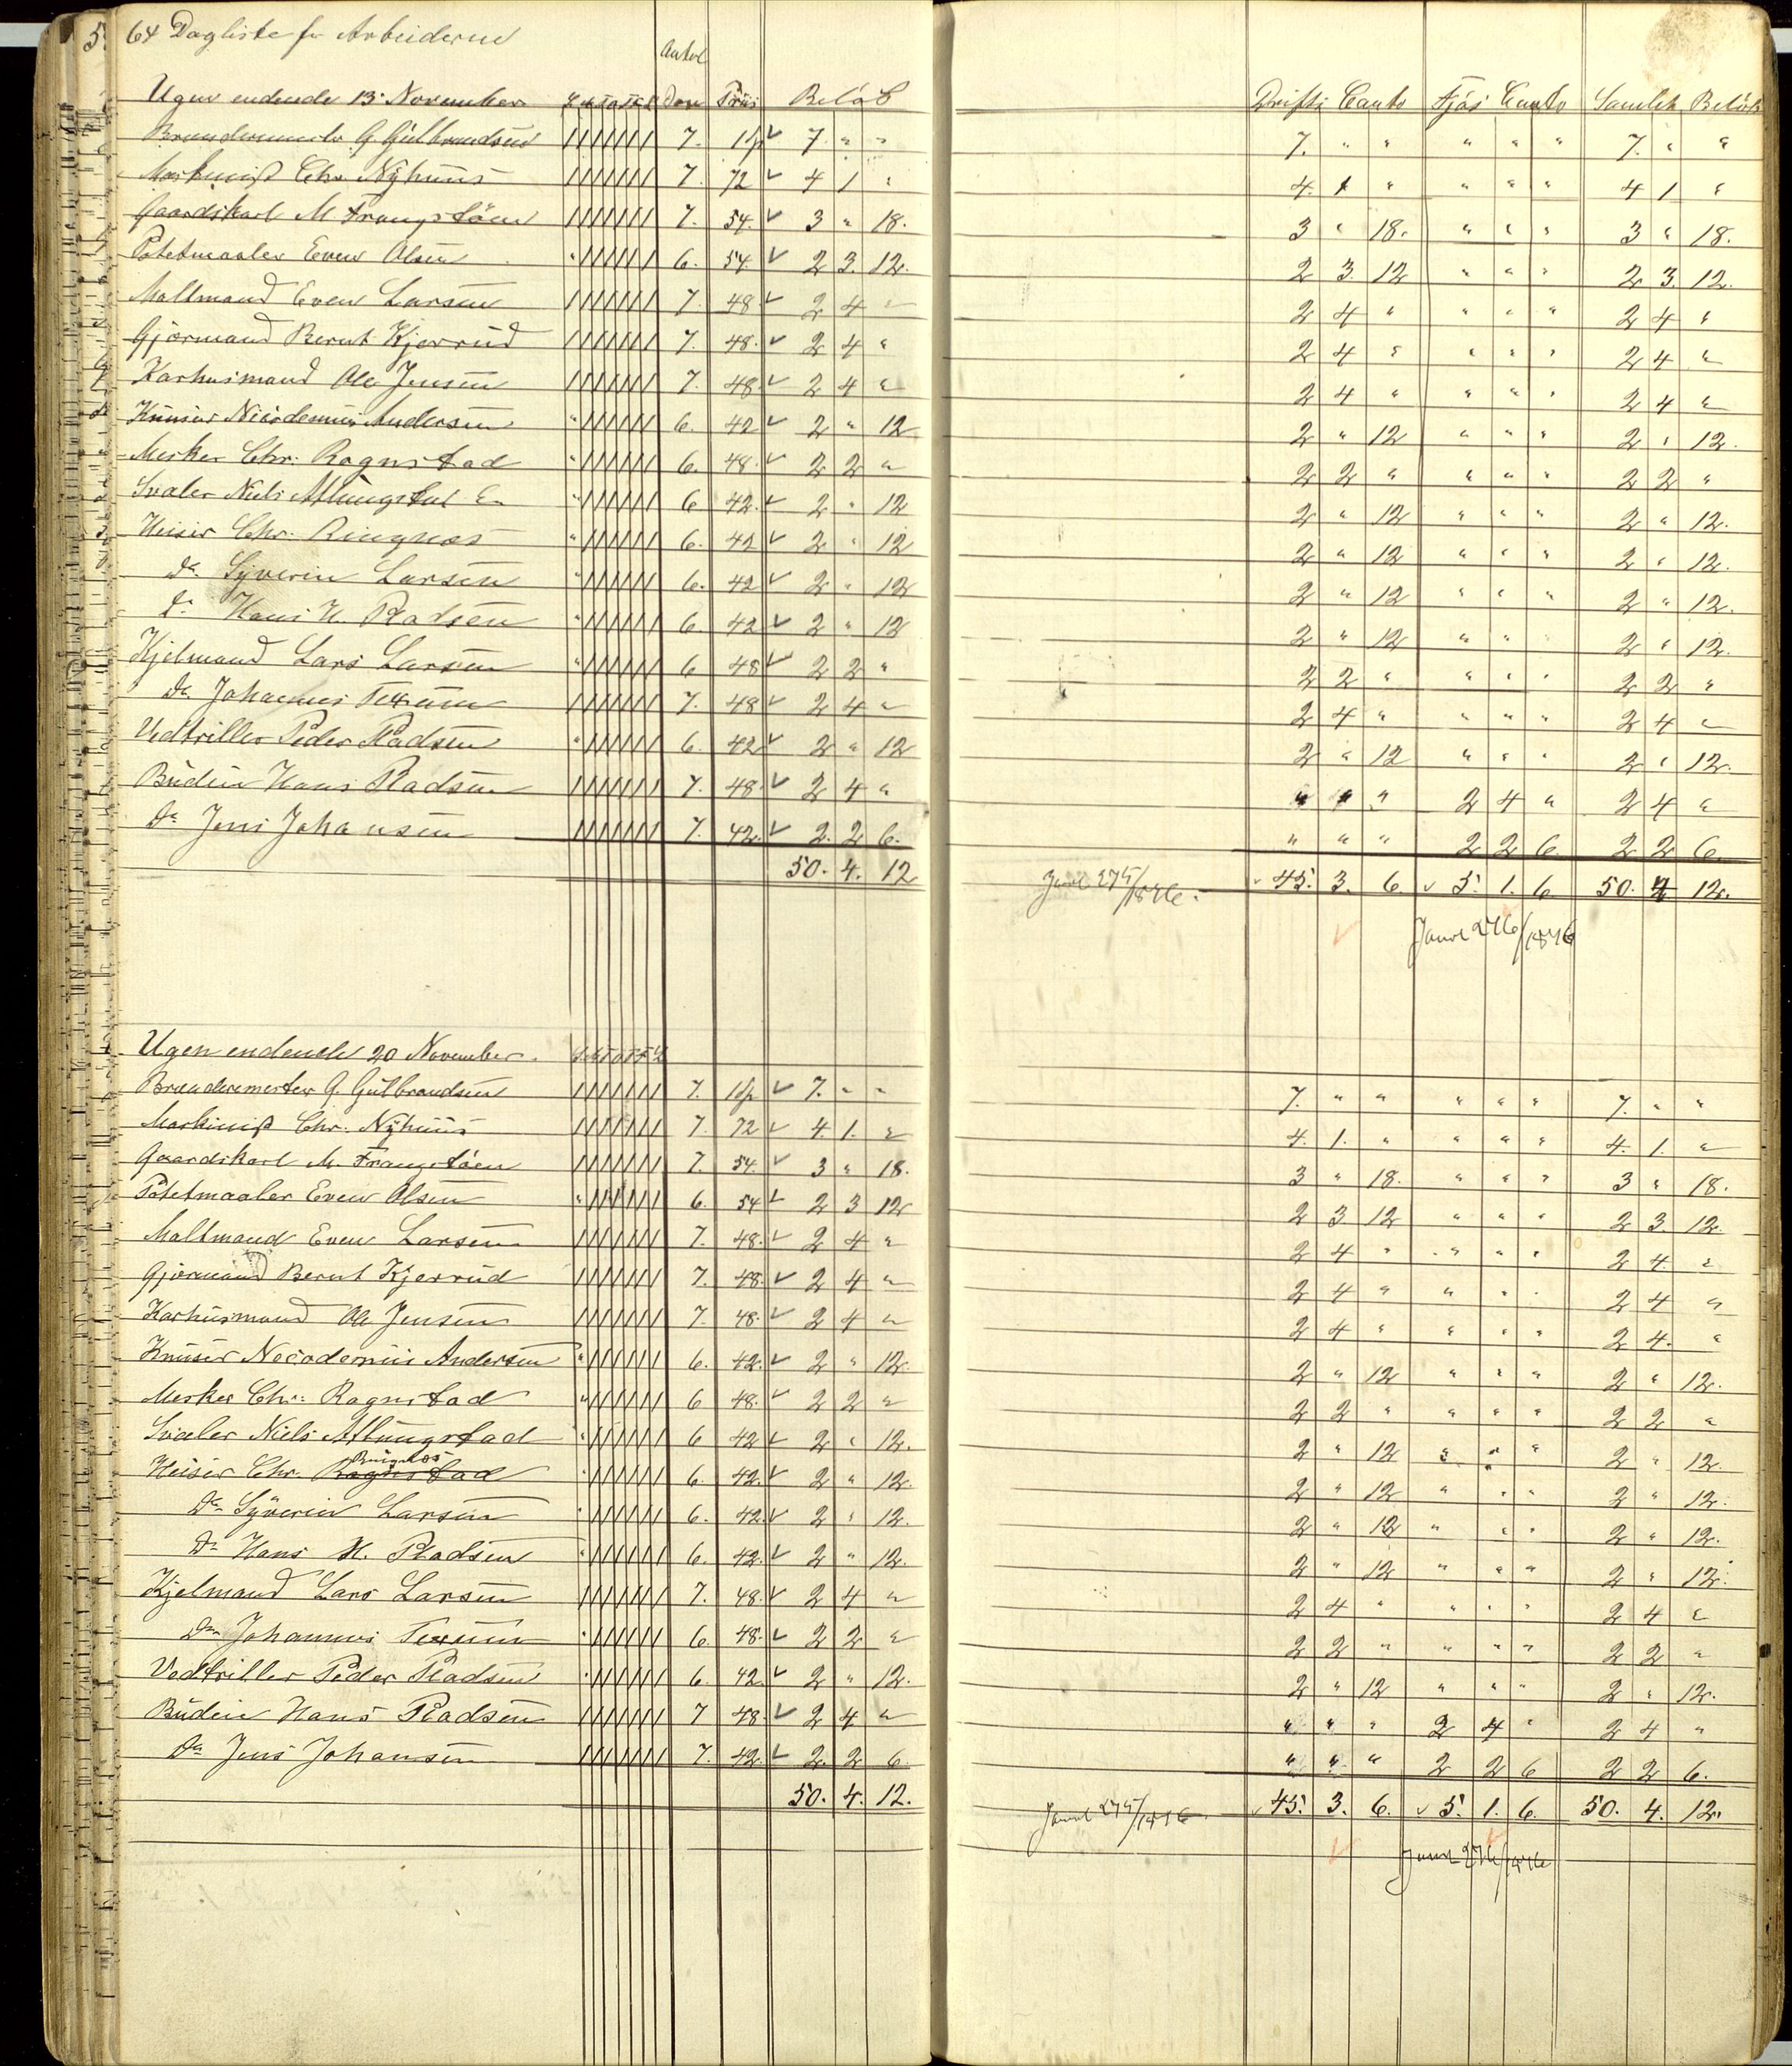 5. 64 Dagliste for Arbeiderne
Ugen endende 13 November S M T O T F L Antal Dage Priis Beløb Drifts Conto Fjøs Conto Samlet Beløb
Brændemester G Gulbrandsen ||||||| 7. 1 ✓ 7 " " 7. " " " " " 7. " "
Maskinist Chr Nÿhuus ||||||| 7. 72 ✓ 4 1 " 4. 1 " " " " 4 1 "
Gaardskarl M Frangstøen ||||||| 7. 54. ✓ 3 " 18. 3 " 18. " " " 3 " 18.
Potetmaaler Even Olsen " |||||| 6. 54. ✓ 2 3. 12. 2 3. 12 " " " 2 3. 12.
Maltmand Even Larsen ||||||| 7. 48 ✓ 2 4 " 2 4 " " " " 2 4 "
Gjørmand Bernt Kjerrud ||||||| 7. 48. ✓ 2 4 " 2 4 " " " " 2 4 "
Karhusmand Ole Jensen ||||||| 7. 48 ✓ 2 4 " 2 4 " " " " 2 4 "
Knuser Nicodemus Andersen " |||||| 6. 42 ✓ 2 " 12 2 " 12 " " " 2 " 12.
Mesker Chr. Ragnstad " |||||| 6. 48. ✓ 2 2 " 2 2 " " " " 2 2 "
Svaler Niels Allungstad " |||||| 6 42. ✓ 2 " 12 2 " 12 " " " 2 " 12.
Heiser Chr. Ringnæs " |||||| 6. 42 ✓ 2 " 12 2 " 12 " " " 2 " 12.
Do Syverin Larsen " |||||| 6. 42 ✓ 2 " 12 2 " 12 " " " 2 " 12.
Do Hans H. Pladsen " |||||| 6. 42 ✓ 2 " 12 2 " 12 " " " 2 " 12.
Kjelmand Lars Larsen " |||||| 6 48 ✓ 2 2 " 2 2 " " " " 2 2 "
Do Johannes ||||||| 7. 48 ✓ 2 4 " 2 4 " " " " 2 4 "
Vedtriller Peder Pladsen " |||||| 6. 42 ✓ 2 " 12 2 " 12 " " " 2 " 12.
Budeie Hans Pladsen ||||||| 7. 48. ✓ 2 4 " " " " 2 4 " 2 4 "
Do Jens Johansen ||||||| 7. 42. ✓ 2. 2 6. " " " 2 2 6. 2 2 6.
50. 4. 12 Journl 275/1876. ✓ 45. 3. 6. ✓ 5. 1. 6 50. 4 12.
✓ Journl 276/1876
Ugen endende 20 November. S M T O T F L
Brændemester G. Gulbrandsen ||||||| 7. 1 ✓ 7. " " 7. " " " " " 7. " "
Maskinist Chr. Nÿhuus ||||||| 7. 72 ✓ 4. 1. " 4. 1. " " " " 4. 1. "
Gaardskarl M. Frangstøen ||||||| 7. 54. ✓ 3 " 18. 3 " 18. " " " 3 " 18.
Potetmaaler Even Olsen " |||||| 6. 54 ✓ 2 3 12 2 3. 12 " " " 2 3. 12.
Maltmand Even Larsen ||||||| 7. 48. ✓ 2 4 " 2 4 " " " " 2 4 "
Gjørmand Bernt Kjerrud ||||||| 7. 48. ✓ 2 4 " 2 4 " " " " 2 4 "
Karhusmand Ole Jensen ||||||| 7. 48. ✓ 2 4 " 2 4 " " " " 2 4. "
Knuser Necodemus Andersen " |||||| 6. 42. ✓ 2 " 12. 2 " 12 " " " 2 " 12.
Mesker Chr. Ragnstad " |||||| 6 48. ✓ 2 2 " 2 2 " " " " 2 2 "
Svaler Niels Allungstad " |||||| 6 42 ✓ 2 " 12. 2 " 12 " " " 2 " 12.
Heiser Chr. Ragnstad Ringnæs " |||||| 6. 42. ✓ 2 " 12. 2 " 12 " " " 2 " 12.
Do Syverin Larsen " |||||| 6. 42. ✓ 2 " 12. 2 " 12 " " " 2 " 12.
Do Hans H. Pladsen " |||||| 6. 42. ✓ 2 " 12. 2 " 12 " " " 2 " 12.
Kjelmand Lars Larsen ||||||| 7. 48. ✓ 2 4 " 2 4 " " " " 2 4 "
Do Johannes " |||||| 6. 48. ✓ 2 2 " 2 2 " " " " 2 2 "
Vedtriller Peder Pladsen " |||||| 6. 42. ✓ 2 " 12. 2 " 12 " " " 2 " 12.
Budeie Hans Pladsen ||||||| 7 48. ✓ 2 4 " " " " 2 4 " 2 4 "
Do Jens Johansen ||||||| 7. 42. ✓ 2. 2 6. " " " 2 2 6 2 2 6.
50. 4. 12. Journl 275/1876. ✓ 45. 3. 6. ✓ 5. 1. 6. 50. 4. 12.
✓ Journl 276/1876